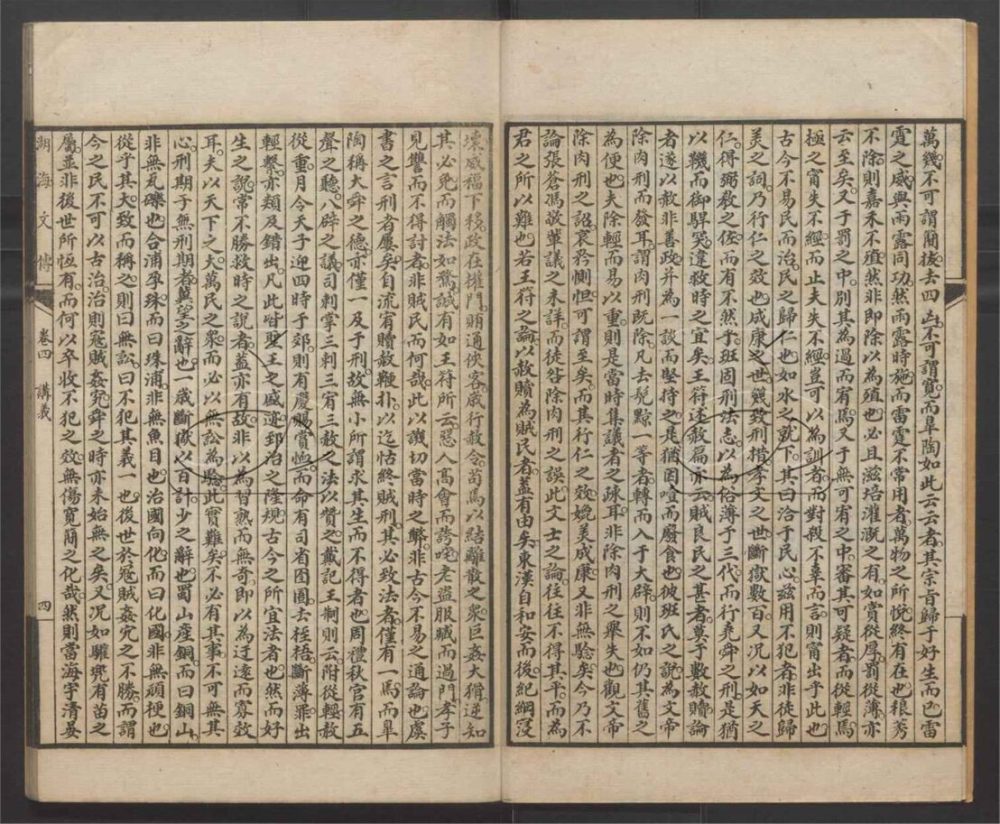 萬幾不可謂簡後去四凶不可謂寬而皐陶如此云云者其宗旨歸于好生而已雷
霆之威與雨露同功然雨露時施而雷霆不常用者萬物之所恱終有在也稂莠
不除則嘉禾不殖然非即除以為殖也必且滋培灌溉之有如賞從厚罰從薄亦
云至矣又于罰之中別其為過而宥焉又于無可宥之中審其可疑者而從輕焉
極之甯失不經而止夫失不經豈可以為訓者而對殺不辜而言則甯出乎此也
古今不易民而治民之歸仁也如水之就下其曰洽于民心兹用不犯者非徒歸
美之詞乃行仁之效也成康之世幾致刑措孝文之世斷獄數百又况以如天之
仁得弼教之佐而有不然乎班固刑法志以為俗薄于三代而行堯舜之刑是猶
以鞿而御駻突違救時之宜矣王符述赦篇亦云賊良民之甚者莫于數赦贖論
者遂以赦非善政并為一談而堅持之是猶因噎而廢食也彼班氏之說為文帝
除肉刑而發耳謂肉刑既除凡去髡黥一等者轉而入于大辟則不如仍其舊之
為便也夫除輕而易以重則是當時集議者之疎耳非除肉刑之舉失也觀文帝
除肉刑之詔哀矜惻怛可謂至矣而其行仁之效媲美成康又非無騐矣今乃不
論張蒼馮敬輩議之未詳而徒咎除肉刑之誤此文士之論往往不得其平而為
君之所以難也若王符之論以赦贖為賊民者蓋有由矣東漢自和安而後紀綱寖
壞威福下移政在權門賄通俠客歲行赦令苟焉以結離散之衆巨姦大猾逆知
其必免而觸法如騖誠有如王符所云惡人高會而誇咤老盜服贓而過門孝子
見讐而不得討者非賊民而何哉此以譏切當時之弊非古今不易之通論也虞
書之言刑者屢矣自流宥贖赦鞭扑以迄怙終賊刑其必致法者僅有一焉而皐
陶稱大舜之德亦僅一及于刑故無小所謂求其生而不得者也周禮秋官有五
聲之聽八辟之議司刺掌三刺三宥三赦之法以贊之戴記王制則云附從輕赦
從重月令天子迎四時于郊則有慶賜賞恤而命有司省囹圄去桎梏斷薄罪出
輕繫亦類及錯出凡此皆聖王之盛迹郅治之隆規古今之所宜法者也然而好
生之說常不勝救時之說者蓋亦有故非以為習熟而無奇即以為迂遠而寡效
耳夫以天下之大萬民之衆而必以無訟為騐此實難矣不必有其事不可無其
心刑期于無刑期者冀望之辭也一歲斷獄以百計少之辭也蜀山産銅而曰銅山
非無瓦礫也合浦孕珠而曰珠浦非無魚目也治國向化而曰化國非無頑梗也
從乎其大致而稱之則曰無訟曰不犯其義一也後世於寇賊姦宄之不勝而謂
今之民不可以古治治則寇賊姦宄舜之時亦未始無之矣又况如驩兜有苗之
屬並非後世所恆有而何以卒收不犯之效無傷寬簡之化哉然則當海宇清晏
湖海文傳 卷四 講義 四